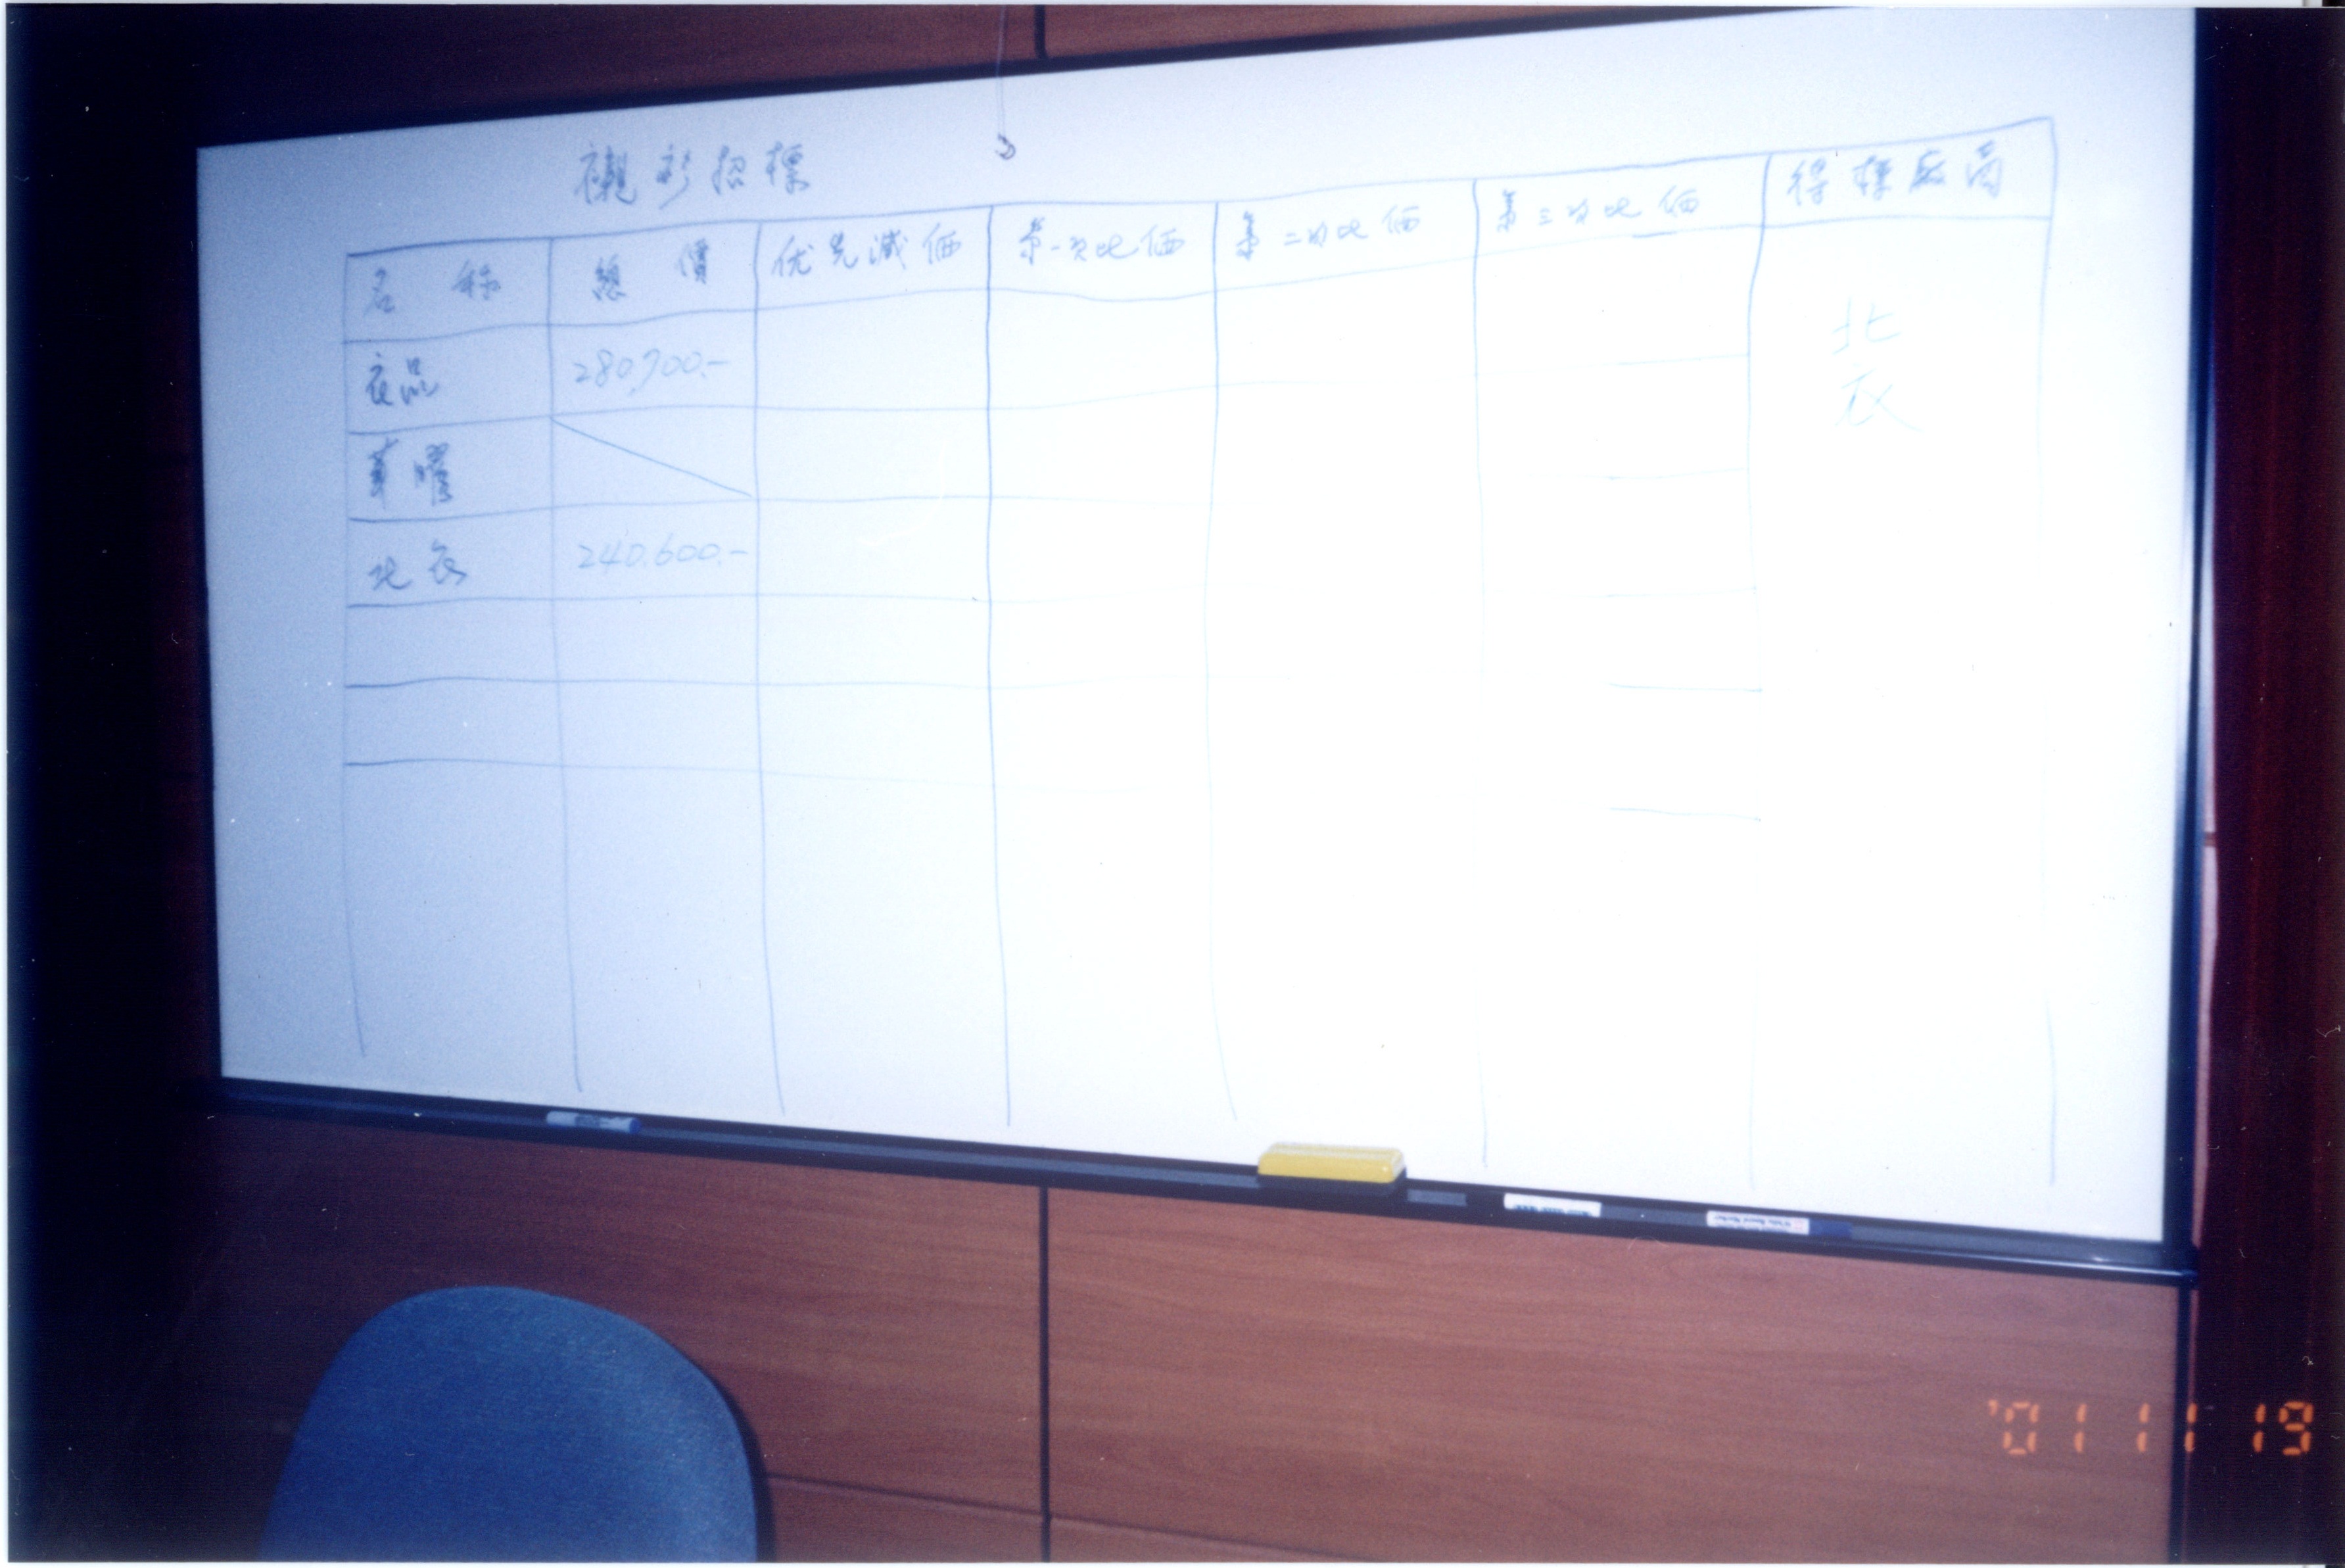 襯衫招標
名称 總價 优先減価 第一次比価 第二次比価 第三次比価 得標廠商
衣品 280,700.-
華曜
北衣 240,600.-
北
衣
'01 11 19